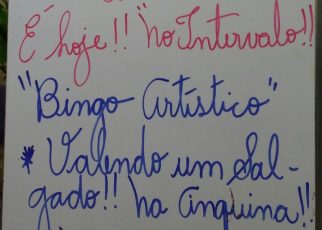 É hoje!! "no Intervalo!!
"Bingo Artístico"
* Valendo um Sal-
gado!! na